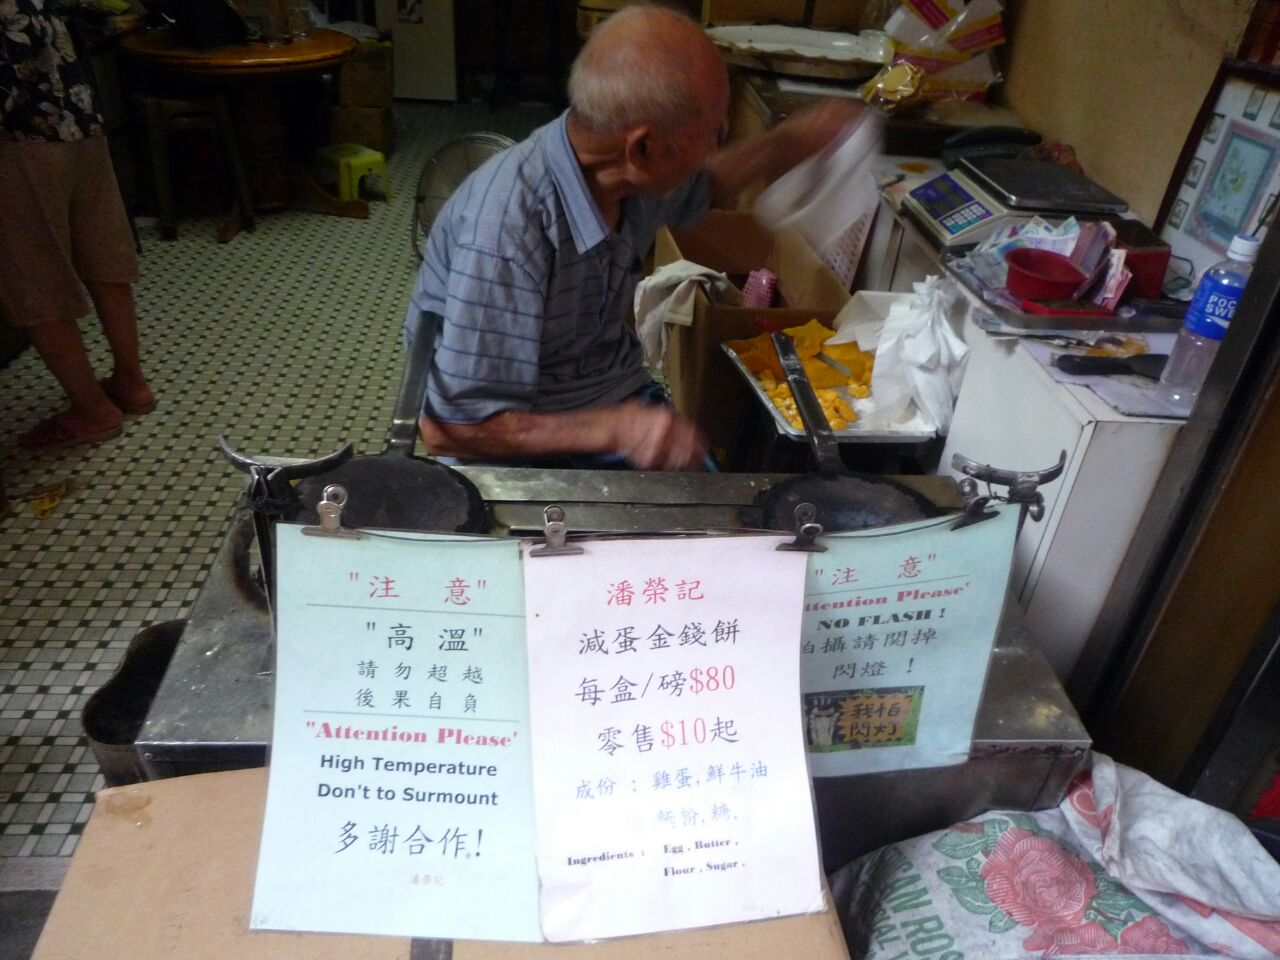 "注 意"
"高 溫"
請 勿 超 越
後 果 自 負
"Attention Please'
High Temperature
Don't to Surmount
多謝合作!
潘榮記
潘榮記
減蛋金錢餅
每盒/磅$80
零售$10起
成份 : 雞蛋,鮮牛油
麵粉,糖.
Ingredients : Egg , Butter ,
Flour , Sugar .
"注 意"
ttention Please'
NO FLASH !
拍攝請関掉
閃燈 !
我怕
閃灯
POC
SWE
AN ROS